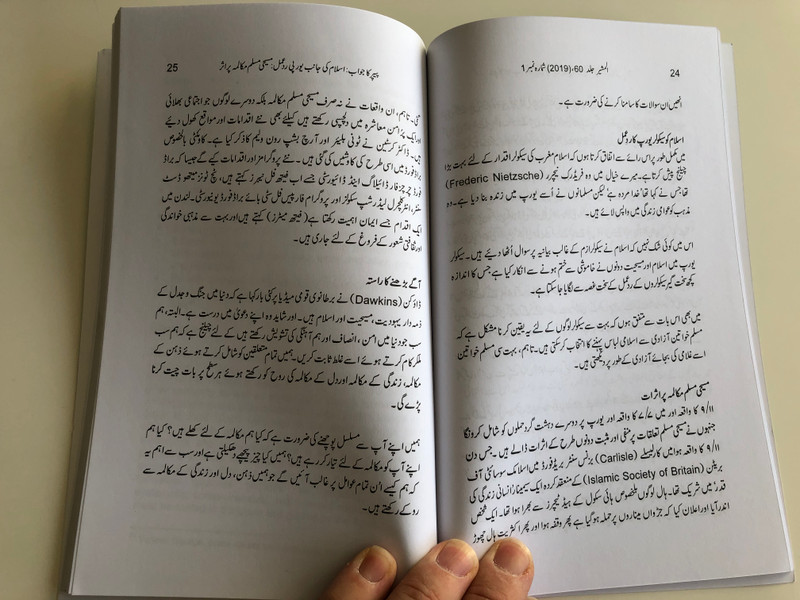 24
المشیر جلد 60، (2019) شمارہ نمبر 1
انھیں ان سوالات کا سامنا کرنے کی ضرورت ہے۔
اسلام کو سیکولر یورپ کا ردِ عمل
میں مکمل طور پر اس رائے سے اتفاق کرتا ہوں کہ اسلام مغرب کی سیکولر اقدار کے لئے بہت بڑا
چیلنج پیش کرتا ہے۔ میرے خیال میں وہ فریڈرک نیچرر (Frederic Nietzsche)
تھا جس نے کہا تھا 'خدا مردہ ہے' لیکن مسلمانوں نے اُسے یورپ میں زندہ بنا دیا ہے۔ وہ
مذہب کو عوامی زندگی میں واپس لائے ہیں۔
اس میں کوئی شک نہیں کہ اسلام نے سیکولرازم کے غالب بیانیہ پر سوال اُٹھا دیے ہیں۔ سیکولر
یورپ میں اسلام اور مسیحیت دونوں نے خاموشی سے ختم ہونے سے انکار کیا ہے جس کا اندازہ
کچھ سخت گیر سیکولروں کے ردِعمل کے سخت غصہ سے لگایا جا سکتا ہے۔
میں بھی اس بات سے متفق ہوں کہ بہت سے سیکولر لوگوں کے لئے یہ یقین کرنا مشکل ہے کہ
مسلم خواتین آزادی سے اسلامی لباس پہننے کا انتخاب کر سکتی ہیں۔ تاہم، بہت سی مسلم خواتین
اسے غلامی کی بجائے آزادی کے طور پر دیکھتی ہیں۔
مسیحی مسلم مکالمہ پر اثرات
۹/۱۱ کا واقعہ اور میں ۷/۷ کا واقعہ اور یورپ پر دوسرے دہشت گرد حملوں کو شامل کروں گا
جنہوں نے مسیحی مسلم تعلقات پر منفی اور مثبت دونوں طرح کے اثرات ڈالے ہیں۔ جس دن
۹/۱۱ کا واقعہ ہوا میں کارلیسلے (Carlisle) بزنس سنٹر بریڈفورڈ میں اسلامک سوسائٹی آف
بریٹن (Islamic Society of Britain) کے منعقد کردہ ایک سیمینار 'انسانی زندگی کی
قدر' میں شریک تھا۔ ہال لوگوں بالخصوص ہائی سکول کے ہیڈ ٹیچرز سے بھرا ہوا تھا۔ ایک شخص
اندر آیا اور اعلان کیا کہ جڑواں میناروں پر حملہ ہو گیا ہے پھر وقفہ ہوا اور پھر اکثریت ہال چھوڑ
25
پیپر کا جواب: اسلام کی جانب یورپی ردِعمل: مسیحی مسلم مکالمہ پر اثر
گئی۔ تاہم، ان واقعات نے نہ صرف مسیحی مسلم مکالمہ بلکہ دوسرے لوگوں جو اجتماعی بھلائی
اور ایک پرامن معاشرہ میں دلچسپی رکھتے ہیں کیلئے بھی نئے اقدامات اور مواقع کھول دیئے
ہیں۔ ڈاکٹر کرسٹین نے ٹونی بلیئر اور آرچ بشپ رون ولیم کا ذکر کیا ہے۔ کاوشیں بالخصوص
براڈ فورڈ میں اسی طرح کی کاوشیں کی گئی ہیں۔ نئے پروگرامز اور اقدامات کیے گئے جیسا کہ براڈ
فورڈ چرچز فار ڈائیلاگ اینڈ ڈائیورسٹی جسے اب فیتھ فل نیبرز کہتے ہیں، ٹچ نوٹز میتھوڈسٹ
سنٹر، انٹرکلچرل لیڈرشپ سکولز اور پروگرام فار پیس فل سٹی ہائے براڈ فورڈ یونیورسٹی۔ لندن میں
ایک اقدام جسے ایمان اہمیت رکھتا ہے (فیتھ میٹرز) کہتے ہیں اور بہت سے مذہبی خواندگی
اور ثقافتی شعور کے فروغ کے لئے جاری ہیں۔
آگے بڑھنے کا راستہ
ڈاؤکن (Dawkins) نے برطانوی قومی میڈیا پر کئی بار کہا ہے کہ دنیا میں جنگ و جدل کے
ذمہ دار یہودیت، مسیحیت اور اسلام ہیں۔ اور شاید وہ اپنے دعویٰ میں درست ہے۔ البتہ، ہم
سب جو دنیا میں امن، انصاف اور ہم آہنگی کی تشویش رکھتے ہیں کے لئے چیلنج ہے کہ ہم سب
ملکر کام کرتے ہوئے اسے غلط ثابت کریں۔ ہمیں تمام متعلقین کو شامل کرتے ہوئے ذہن کے
مکالمہ، زندگی کے مکالمہ اور دل کے مکالمہ کی روح کو رکھتے ہوئے ہر سطح پر بات چیت کرنا
پڑے گی۔
ہمیں اپنے آپ سے مسلسل پوچھنے کی ضرورت ہے کہ کیا ہم مکالمہ کے لئے کھلے ہیں؟ کیا ہم
اپنے آپ کو مکالمہ کے لئے تیار کر رہے ہیں؟ ہمیں کیا چیز پیچھے دھکیلتی ہے اور سب سے اہم یہ
کہ ہم کیسے اُن تمام عوامل پر غالب آئیں گے جو ہمیں ذہن، دل اور زندگی کے مکالمہ سے
روکے رکھتے ہیں۔